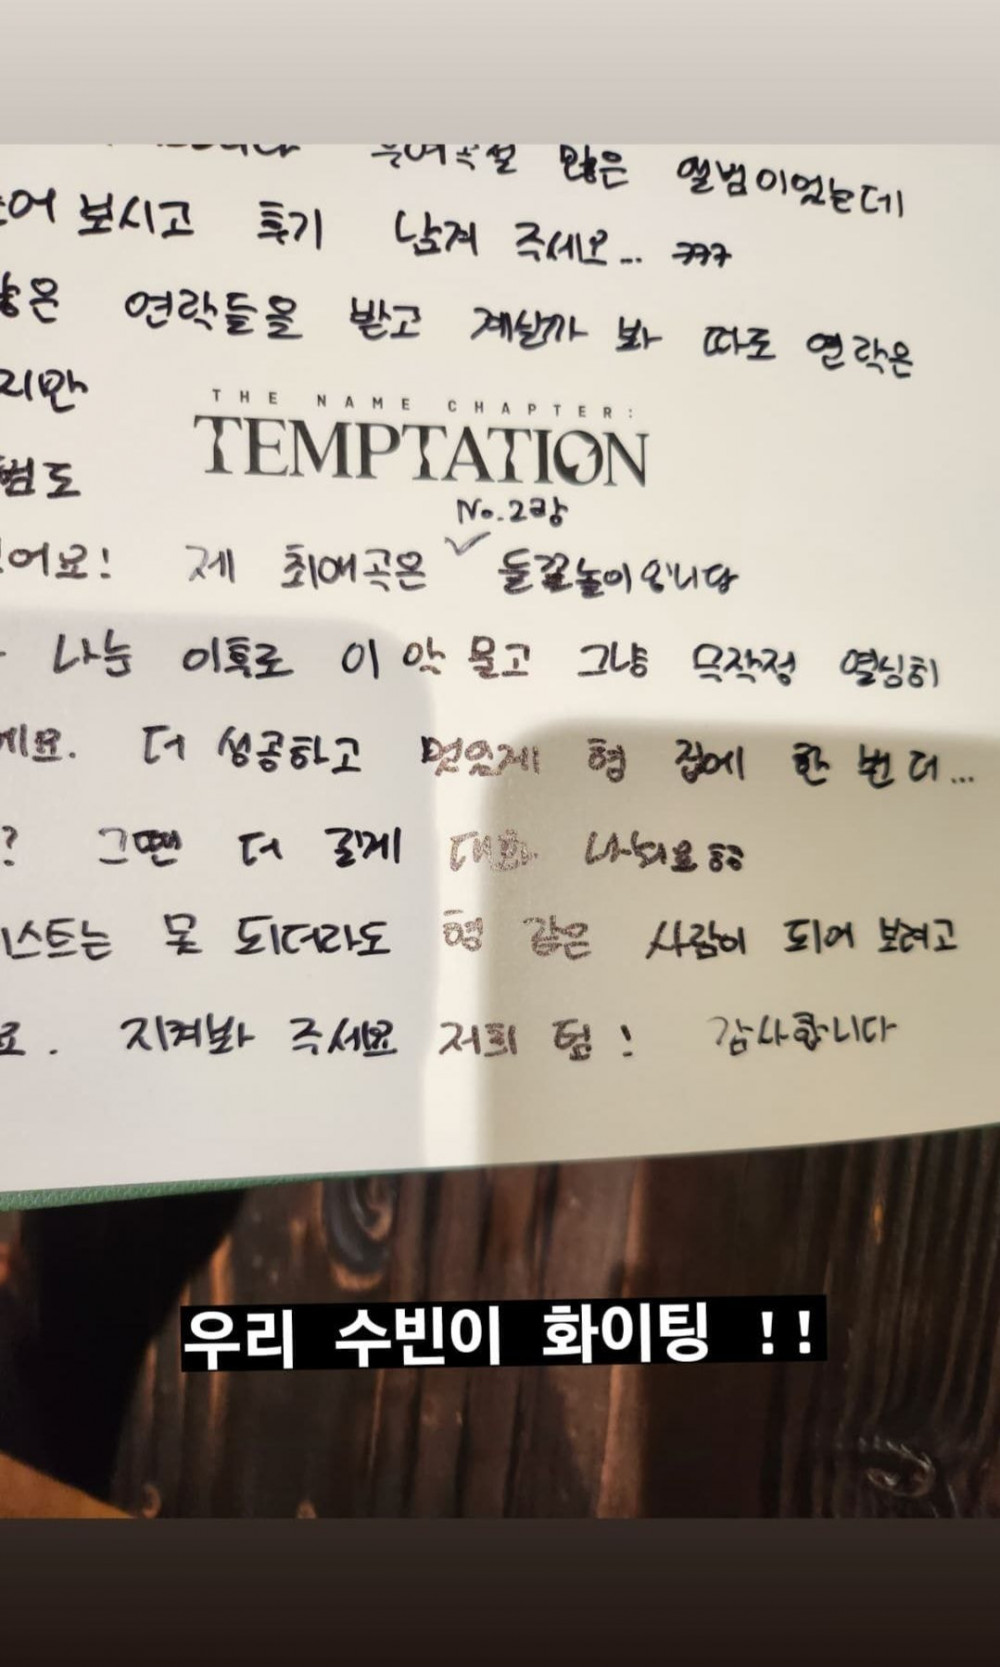 많은 앨범이었는데
보시고 후기 남겨 주세요... ㅋㅋㅋ
연락들을 받고 계실까 봐 따로 연락은
지만
THE NAME CHAPTER:
TEMPTATION
범도
No.2랑
어요! 제 최애곡은 ✓ 돌꽃놀이입니다
나눈 이후로 이 악 물고 그냥 무작정 열심히
데요. 더 성공하고 멋있게 형 집에 한 번 더...
? 그땐 더 길게 대화 나눠요 ㅎㅎ
스트는 못 되더라도 형 같은 사람이 되어 보려고
요. 지켜봐 주세요 저희 텀! 감사합니다
우리 수빈이 화이팅 !!